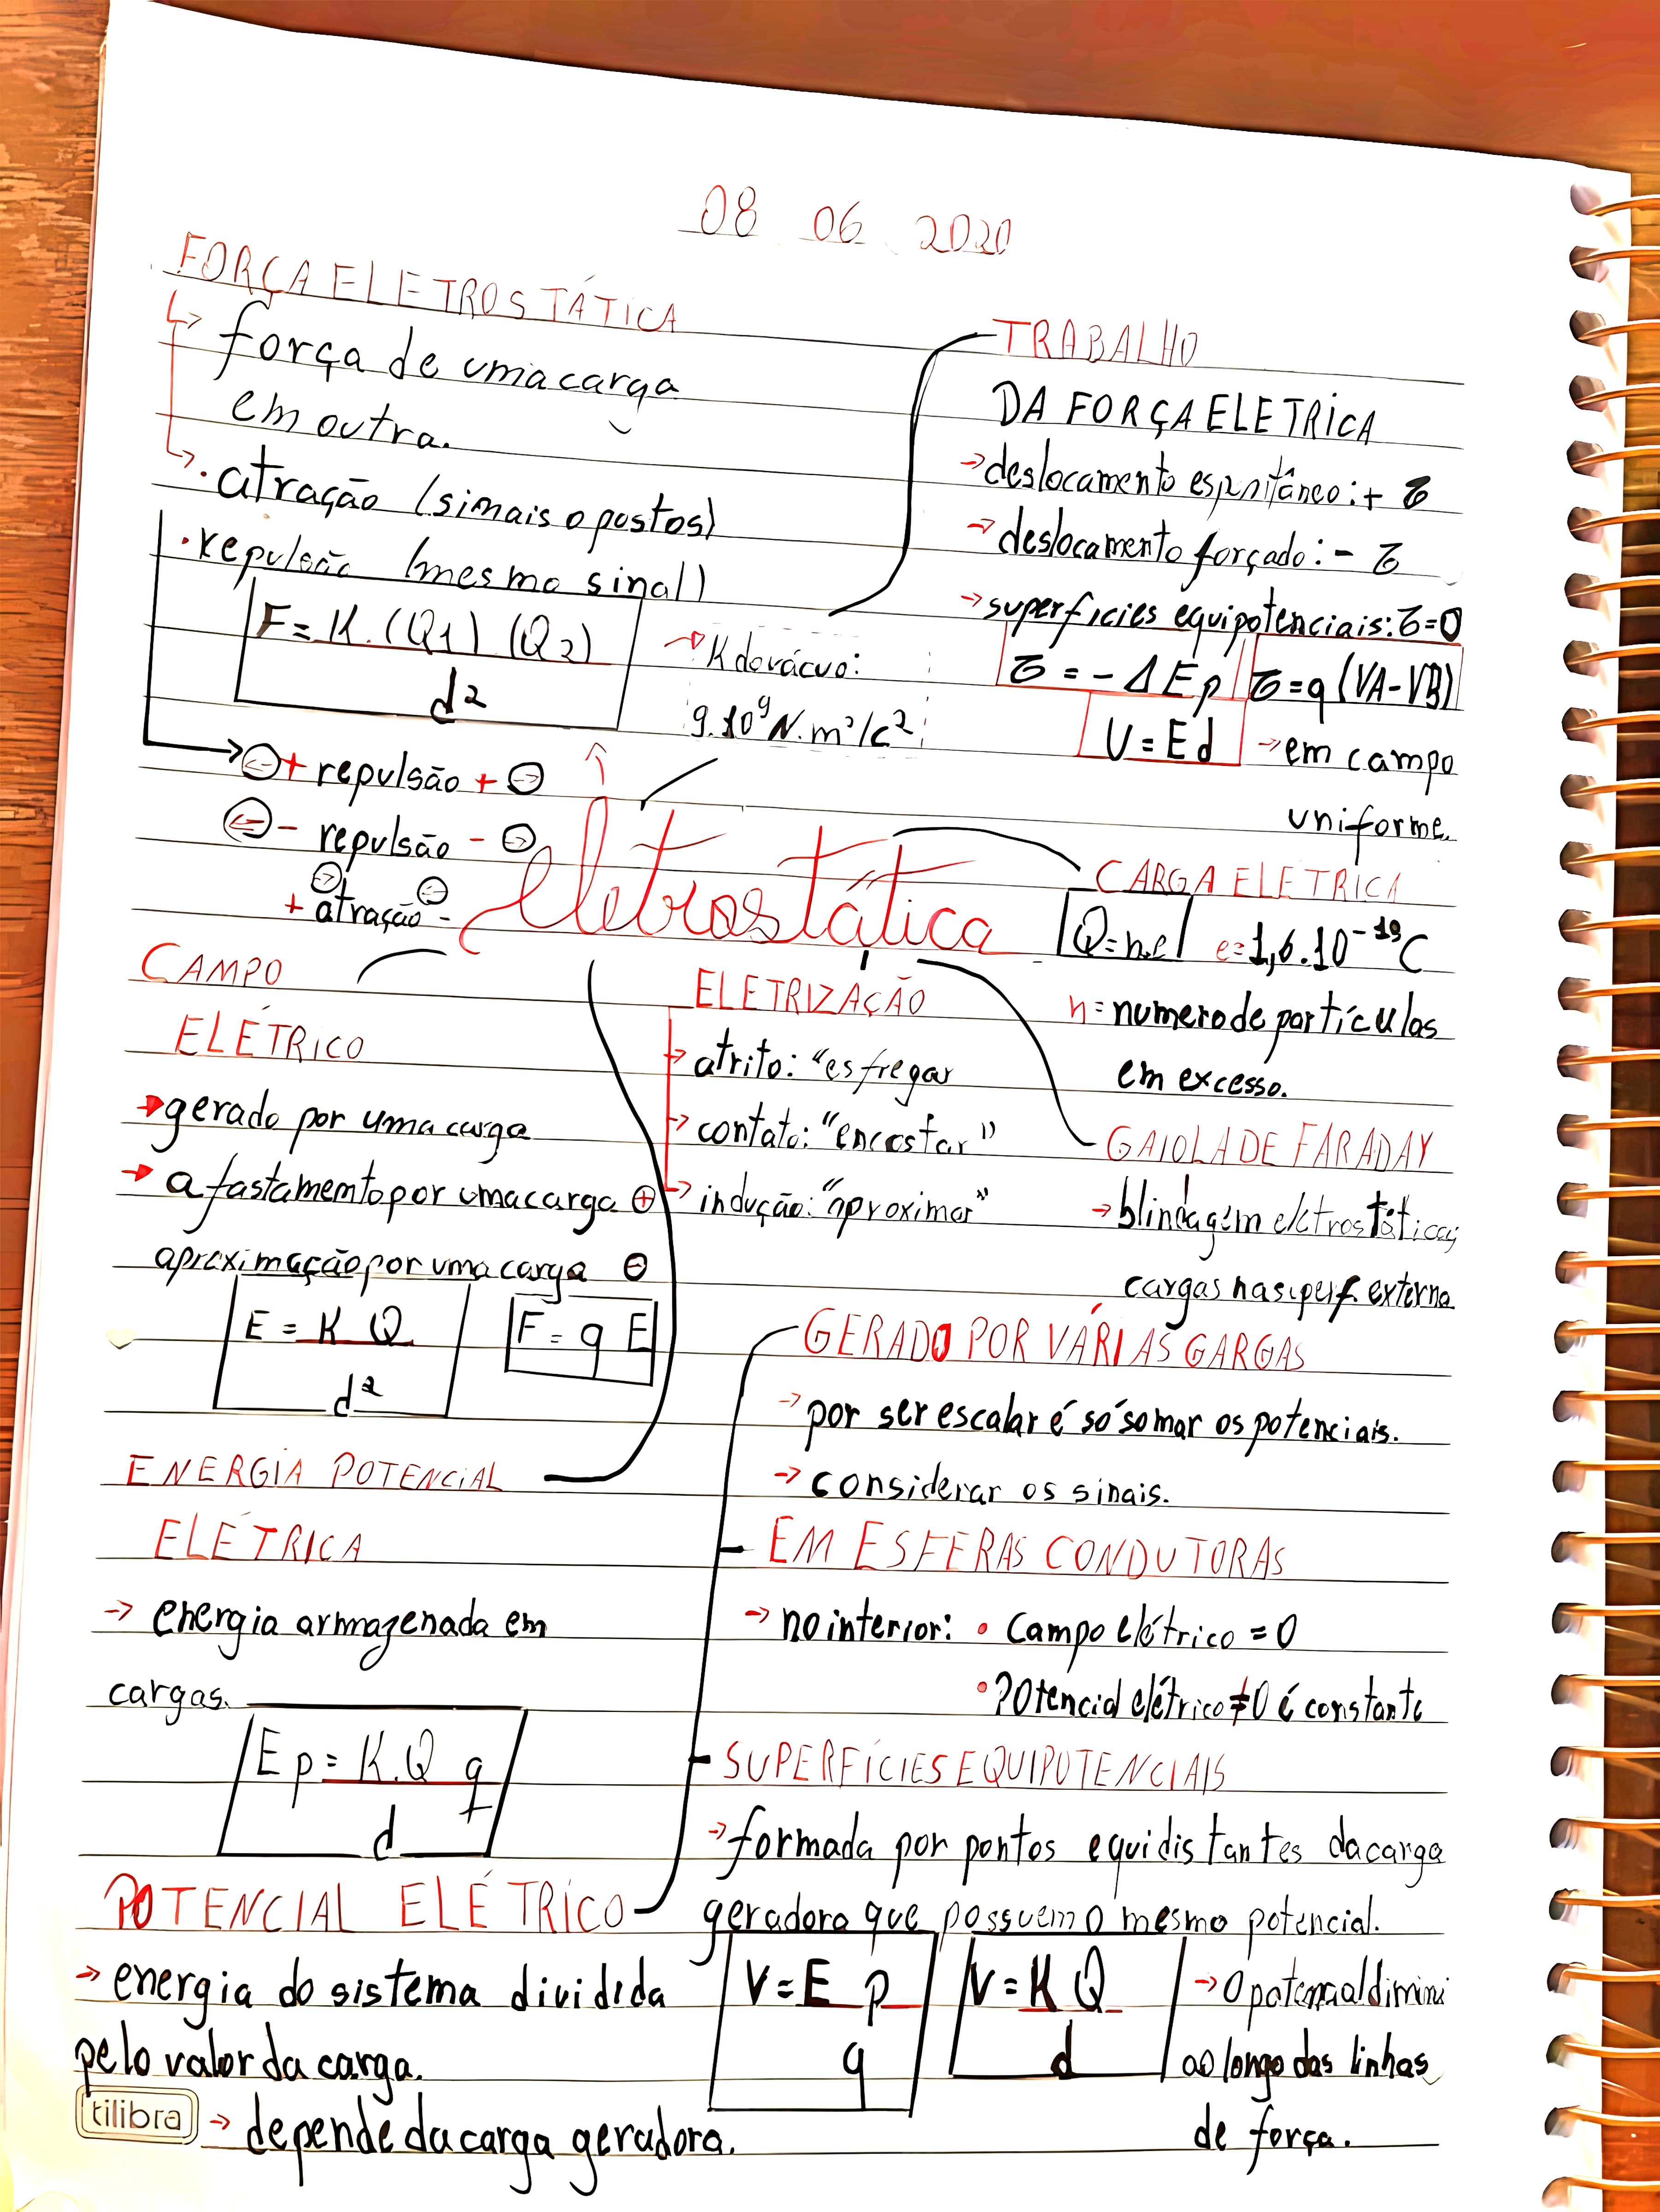 08 06 2020
FORÇA ELETROSTÁTICA
força de uma carga
em outra.
• atração (sinais opostos)
• repulsão (mesmo sinal)
F = K.(Q1) (Q2)
d²
K do vácuo:
9.10⁹ N.m²/c²
+ repulsão +
- repulsão -
+ atração -
TRABALHO
DA FORÇA ELETRICA
→ deslocamento espontâneo: + τ
→ deslocamento forçado: - τ
→ superfícies equipotenciais: τ=0
τ = - Δ Ep
τ = q (VA-VB)
U = Ed → em campo
uniforme.
eletrostática
CARGA ELETRICA
Q = n.e e = 1,6.10⁻¹⁹ C
n = numero de partículas
em excesso.
CAMPO
ELÉTRICO
→ gerado por uma carga
→ afastamento por uma carga ⊕
aproximação por uma carga ⊖
E = K Q
d²
F = q E
ELETRIZAÇÃO
→ atrito: "esfregar
→ contato: "encostar"
→ indução: "aproximar"
GAIOLA DE FARADAY
→ blindagem eletrostática;
cargas na superf. externa
ENERGIA POTENCIAL
ELÉTRICA
→ energia armazenada em
cargas.
Ep = K.Q q
d
GERADO POR VÁRIAS GARGAS
→ por ser escalar é só somar os potenciais.
→ considerar os sinais.
EM ESFERAS CONDUTORAS
→ no interior: • Campo elétrico = 0
• Potencial elétrico ≠ 0 é constante
SUPERFÍCIES EQUIPOTENCIAIS
→ formada por pontos equidistantes da carga
geradora que possuem o mesmo potencial.
POTENCIAL ELÉTRICO
→ energia do sistema dividida
pelo valor da carga.
→ depende da carga geradora.
V = E p
q
V = K Q
d
→ O potencial diminui
ao longo das linhas
de força.
tilibra